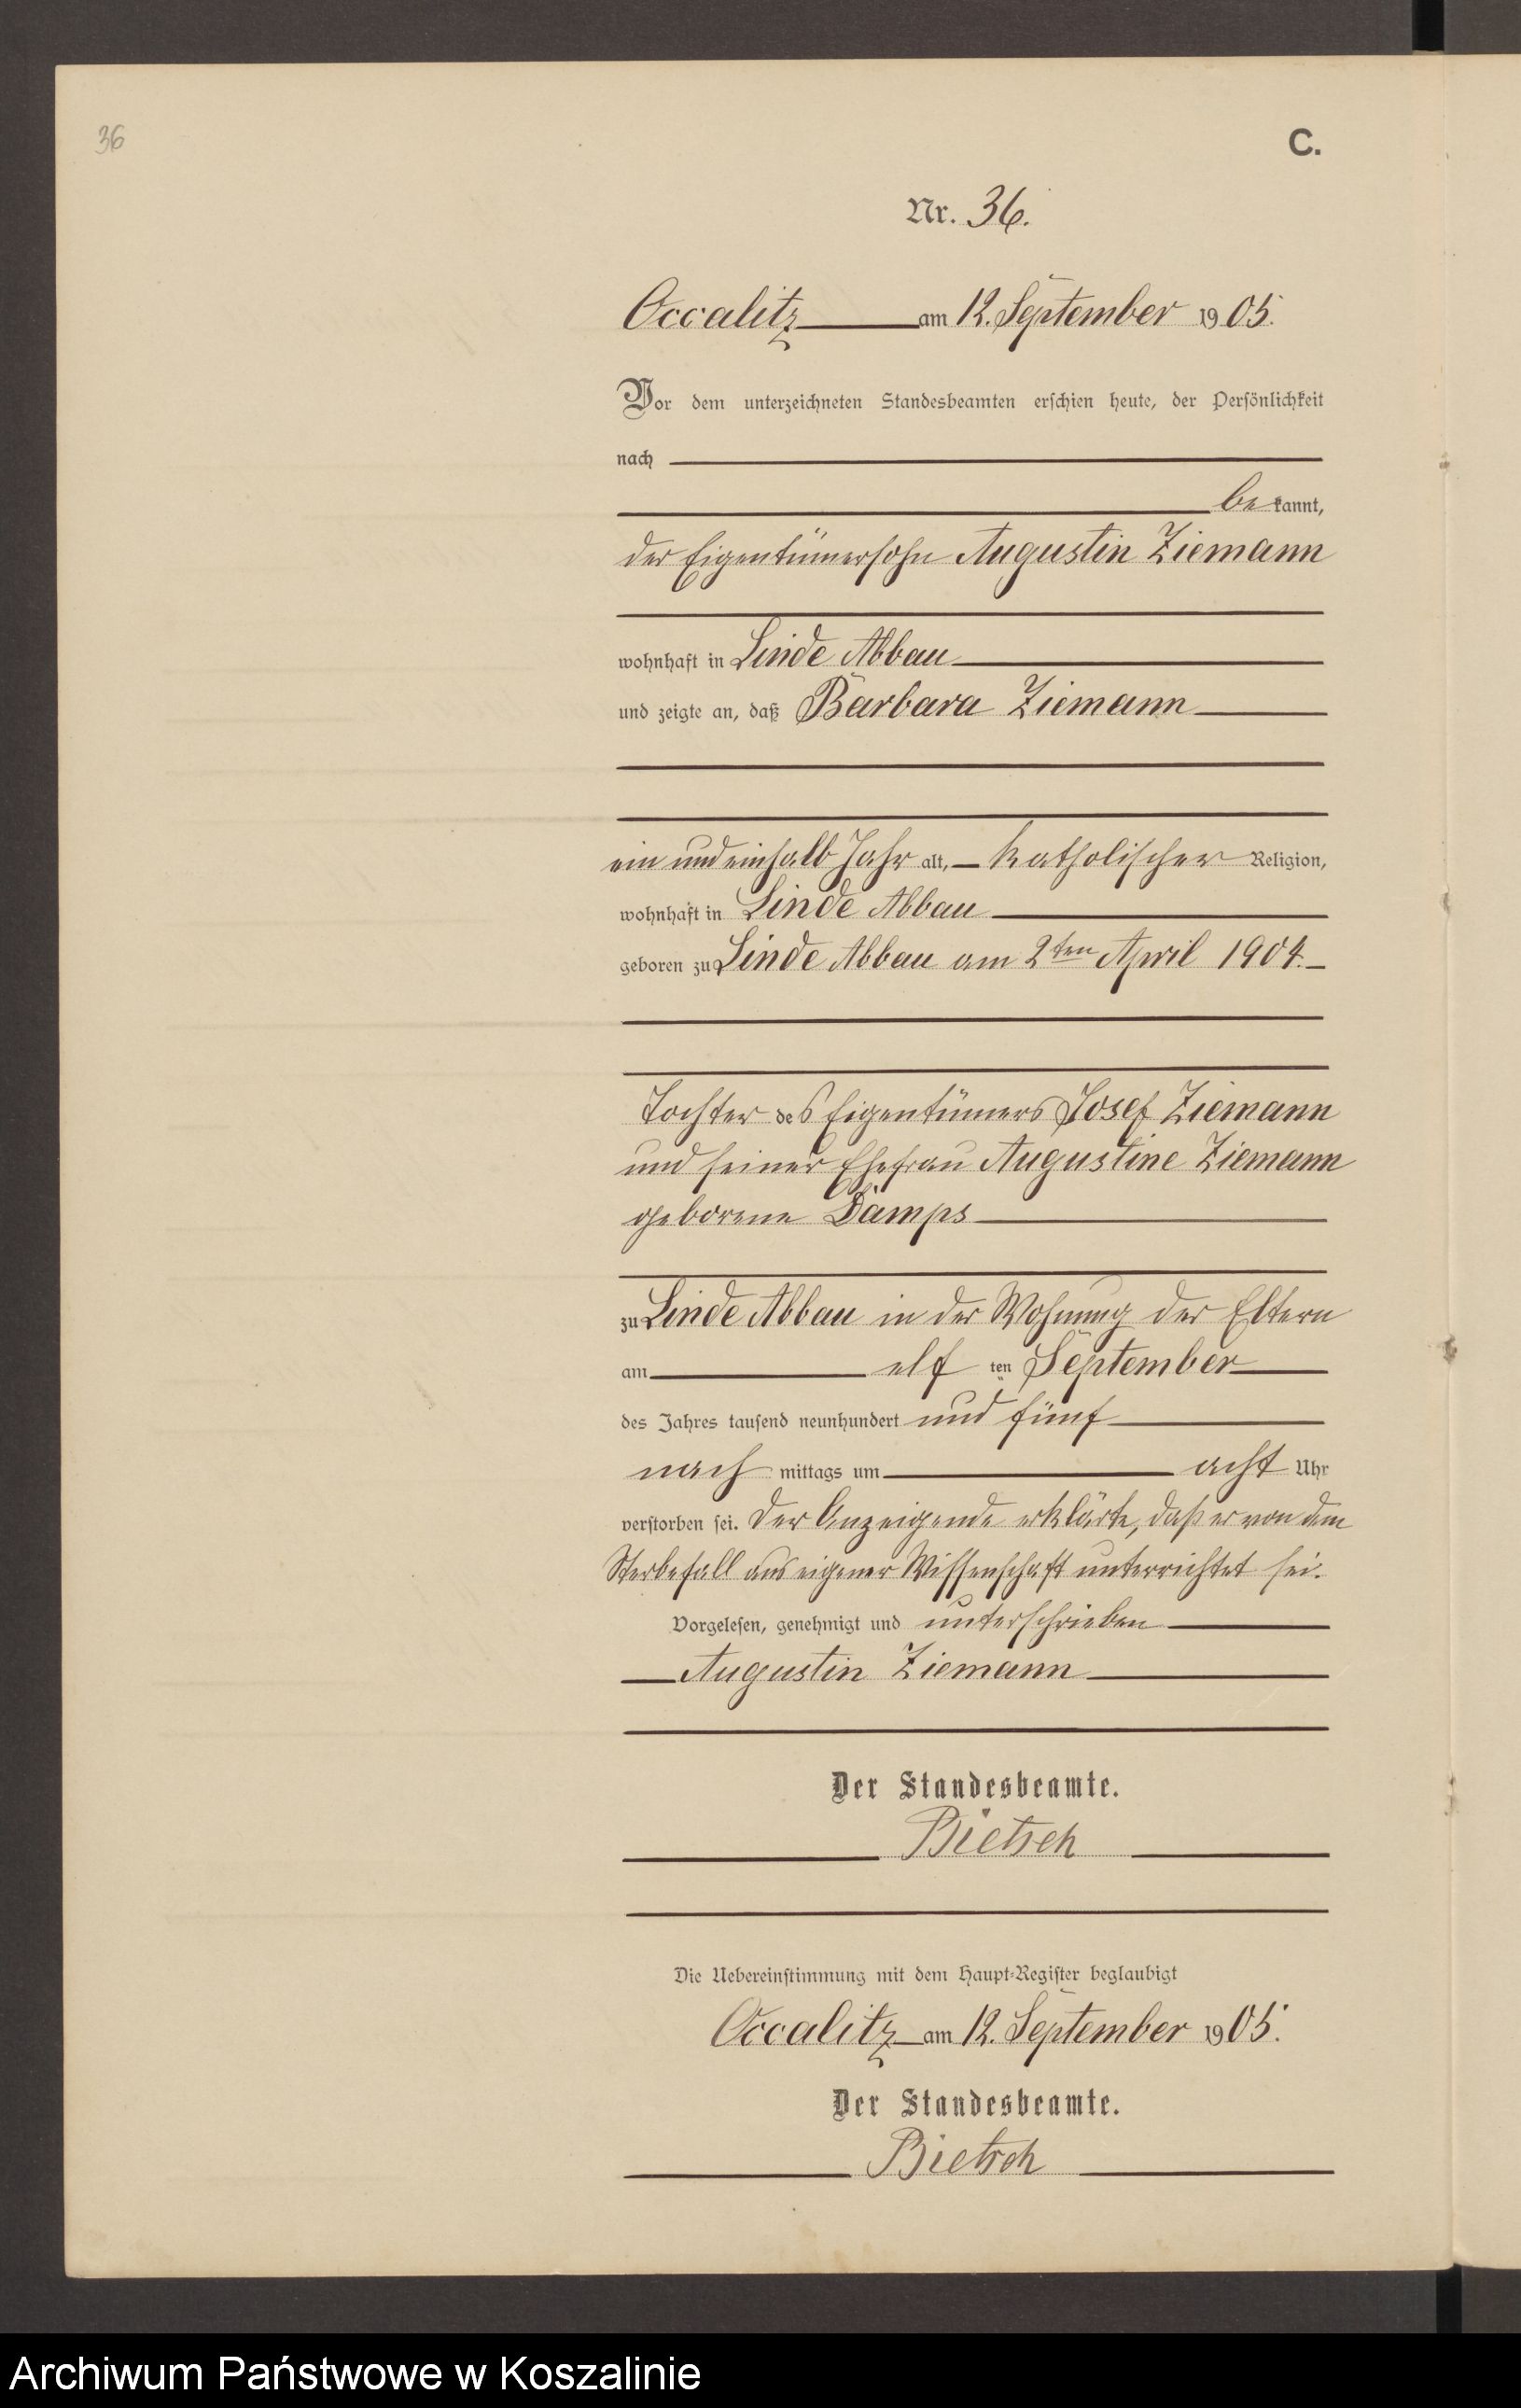 36
C.
Nr. 36.
Occalitz am 12. September 1905.
Vor dem unterzeichneten Standesbeamten erschien heute, der Persönlichkeit
nach
bekannt,
der Eigentümersohn Augustin Ziemann
wohnhaft in Linde Abbau
und zeigte an, daß Barbara Ziemann
ein und einhalb Jahr alt, katholischer Religion,
wohnhaft in Linde Abbau
geboren zu Linde Abbau am 2ten April 1904.
Tochter des Eigentümers Josef Ziemann
und seiner Ehefrau Augustine Ziemann
geborene Damps
zu Linde Abbau in der Wohnung der Eltern
am elf ten September
des Jahres tausend neunhundert und fünf
nach mittags um acht Uhr
verstorben sei. Der Anzeigende erklärte, daß er von dem
Sterbefall aus eigener Wissenschaft unterrichtet sei.
Vorgelesen, genehmigt und unterschrieben
Augustin Ziemann
Der Standesbeamte.
Bietsch
Die Uebereinstimmung mit dem Haupt-Register beglaubigt
Occalitz am 12. September 1905.
Der Standesbeamte.
Bietsch
Archiwum Państwowe w Koszalinie